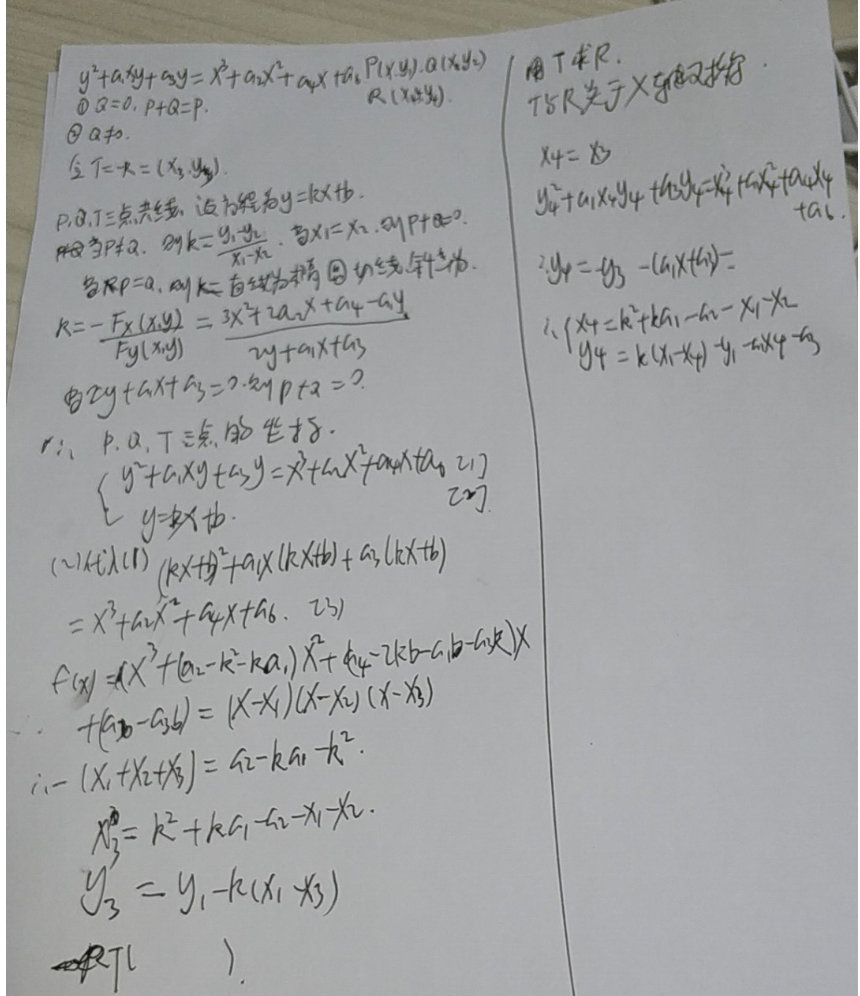 y²+a₁xy+a₃y=x³+a₂x²+a₄x+a₆ P(x₁y₁).Q(x₂y₂)
R(x₄,y₄).
① Q=0, P+Q=P.
② Q≠0.
令T=-R=(x₃.y₃).
P.Q.T三点共线, 设方程为y=kx+b.
当P≠Q. 则k=\frac{y₁-y₂}{x₁-x₂}. 当x₁=x₂.则P+Q=0.
当P=Q,则k=直线为椭圆切线斜率为.
k=-\frac{Fx(x,y)}{Fy(x,y)}=\frac{3x²+2a₂x+a₄-a₁y}{2y+a₁x+a₃}
当2y+a₁x+a₃=0.则P+Q=0.
∴ P.Q,T三点的坐标.
{ y²+a₁xy+a₃y=x³+a₂x²+a₄x+a₆ (1)
y=kx+b. (2)
(2)代入(1) (kx+b)²+a₁x(kx+b)+a₃(kx+b)
=x³+a₂x²+a₄x+a₆. (3)
f(x)=x³+(a₂-k²-ka₁)x²+(a₄-2kb-a₁b-a₃k)x
+(a₆-a₃b)=(x-x₁)(x-x₂)(x-x₃)
∴-(x₁+x₂+x₃)=a₂-ka₁-k².
x₃=k²+ka₁-a₂-x₁-x₂.
y₃=y₁-k(x₁-x₃)
T( ).
用T求R.
T与R关于X
x₄=x₃
y₄²+a₁x₄y₄+a₃y₄=x₄³+a₂x₄²+a₄x₄
+a₆.
∴y₄=-y₃-(a₁x+a₃)=
∴{x₄=k²+ka₁-a₂-x₁-x₂
y₄=k(x₁-x₄)-y₁-a₁x₄-a₃